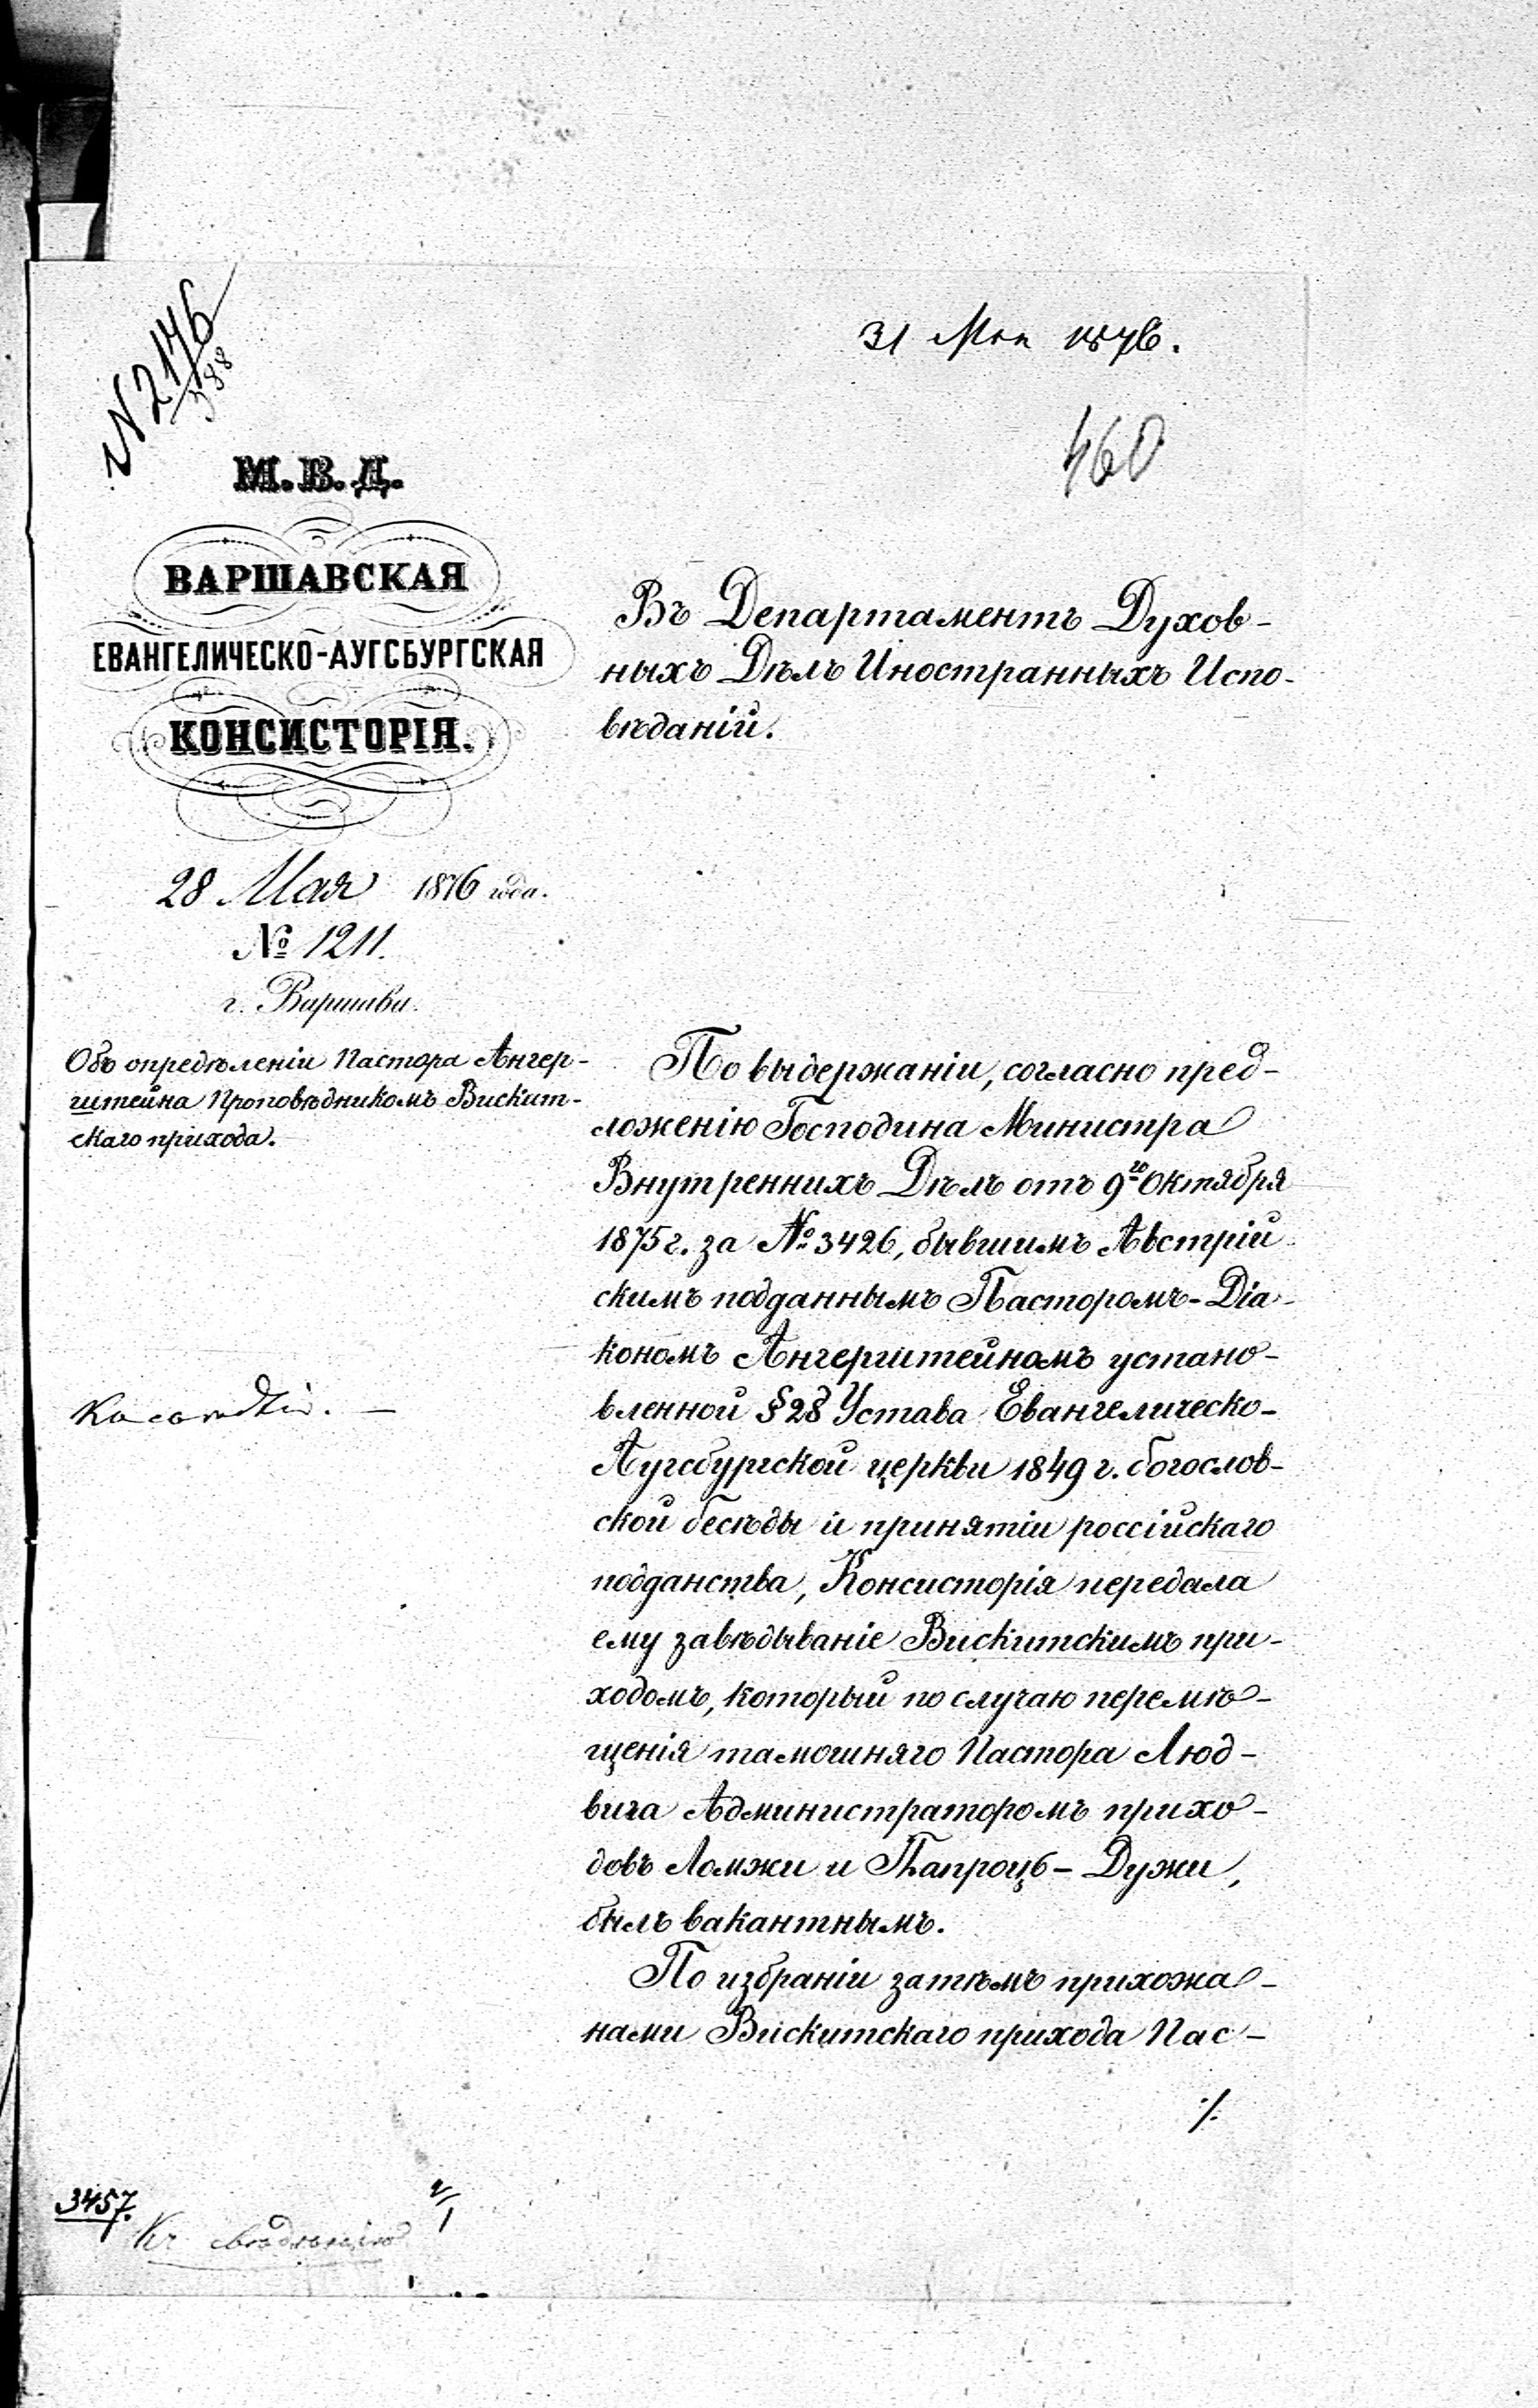 № 2176
388
31 Мая 1876.
460
М. В. Д.
ВАРШАВСКАЯ
ЕВАНГЕЛИЧЕСКО-АУГСБУРГСКАЯ
КОНСИСТОРІЯ.
28 Мая 1876 года.
№ 1211.
г. Варшава.
Объ опредѣленіи Пастора Ангер-
штейна Проповѣдникомъ Вискит-
скаго прихода.
Въ Департаментъ Духов-
ныхъ Дѣлъ Иностранныхъ Испо-
вѣданій.
По выдержаніи, согласно пред-
ложенію Господина Министра
Внутреннихъ Дѣлъ отъ 9го Октября
1875 г. за № 3426, бывшимъ Австрій
скимъ подданнымъ Пасторомъ-Діа-
кономъ Ангерштейномъ устано-
вленной § 28 Устава Евангелическо-
Аугсбургской церкви 1849 г. богослов-
ской бесѣды и принятіи россійскаго
подданства, Консисторія передала
ему завѣдываніе Вискитскимъ при-
ходомъ, который по случаю перемѣ-
щенія тамошняго Пастора Люд-
вига Администраторомъ прихо-
довъ Ломжи и Папроць-Дужи,
былъ вакантнымъ.
По избраніи затѣмъ прихожа-
нами Вискитскаго прихода Пас-
./.
3457.
Къ свѣдѣнію